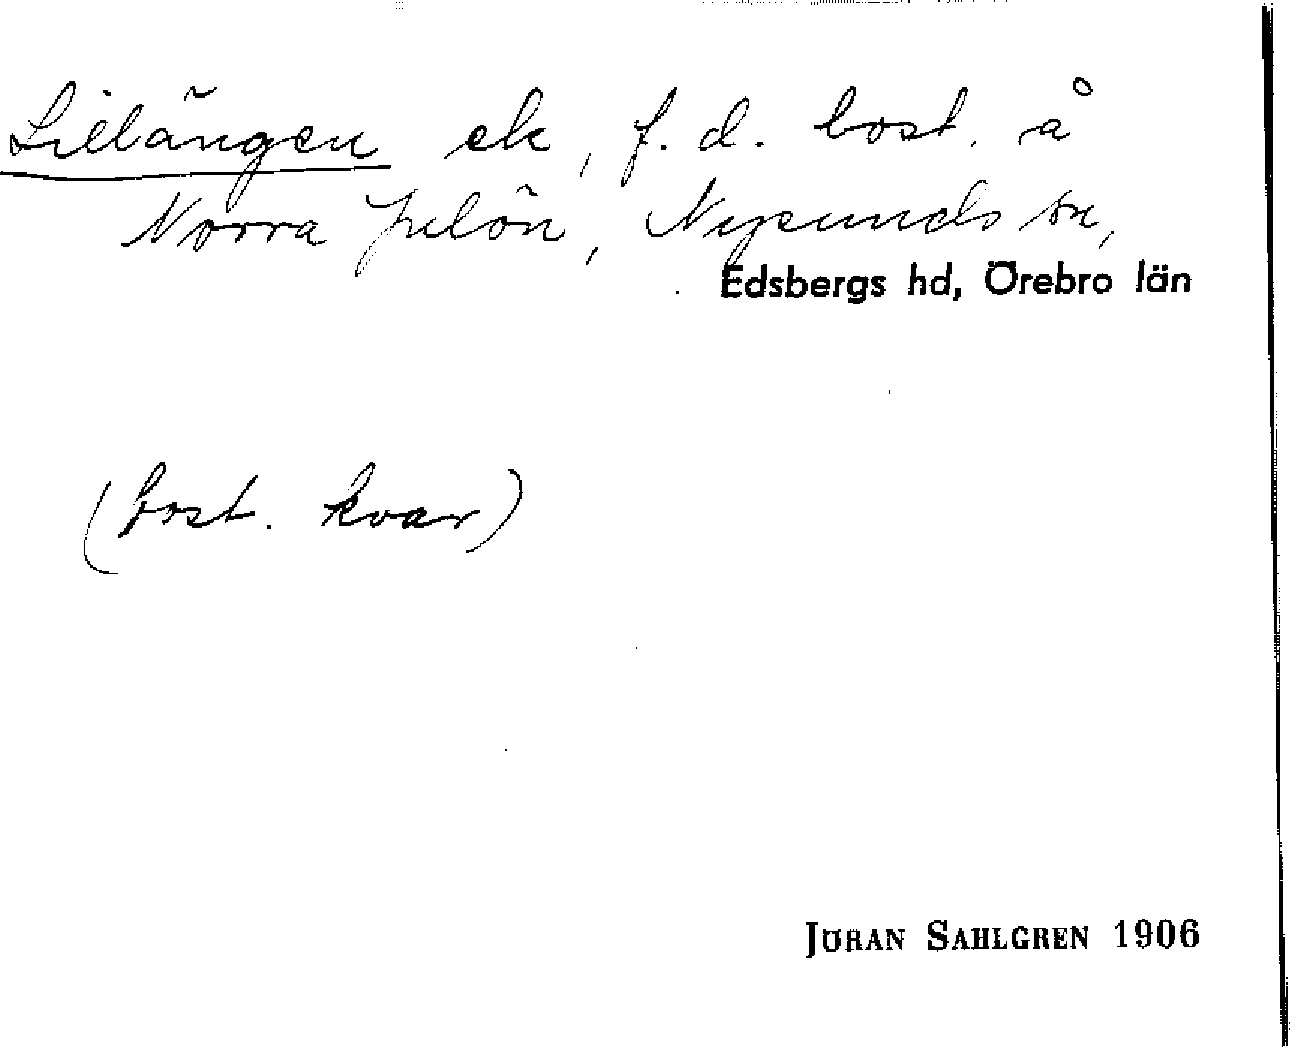 Lillängen ek, f. d. bost. å
Norra Julön, Nysunds sn,
Edsbergs hd, Örebro län
(bost. kvar)
JÖRAN SAHLGREN 1906